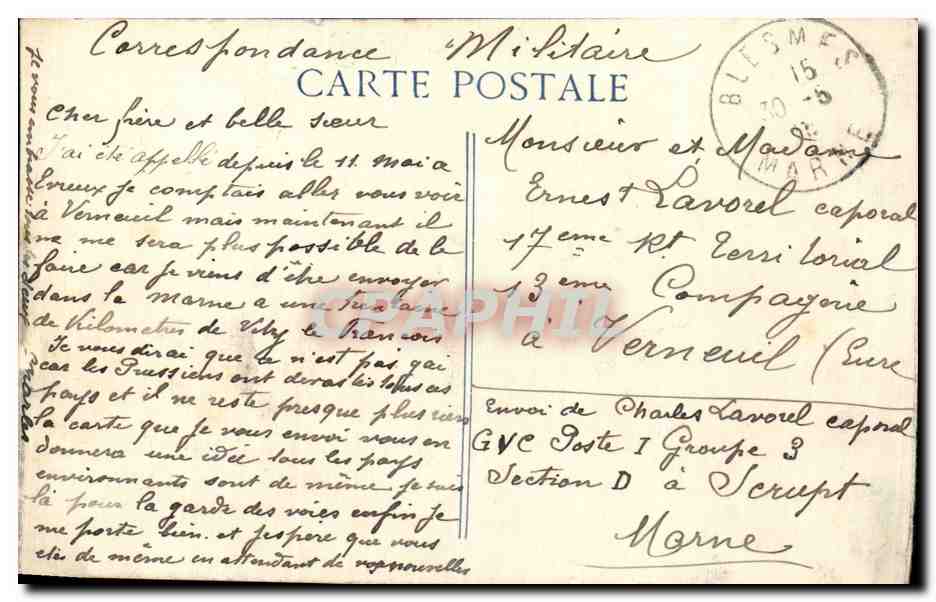 Correspondance Militaire
CARTE POSTALE
BLESMES
15
30 -5
MARNE
Cher frère et belle sœur
J'ai été appellé depuis le 11 mai a
Evreux je comptais aller vous voir
à Verneuil mais maintenant il
ne me sera plus possible de le
faire car je viens d'être envoyer
dans la Marne a une trentaine
de Kilometres de Vitry le François
Je vous dirai que ce n'est pas gai
car les Prussiens ont devasté tous ces
pays et il ne reste presque plus rien
la carte que je vous envoi vous en
donnera une idée tous les pays
environnants sont de même je suis
là pour la garde des voies enfin je
me porte bien et j'espère que vous
etes de même en attendant de vos nouvelles
Je vous embrasse tous les deux Charles
Monsieur et Madame
Ernest Lavorel caporal
17eme Rt Territorial
13eme Compagnie
à Verneuil (Eure
Envoi de Charles Lavorel caporal
GVC Poste I Groupe 3
Section D à Scrupt
Marne
CPAPHIL